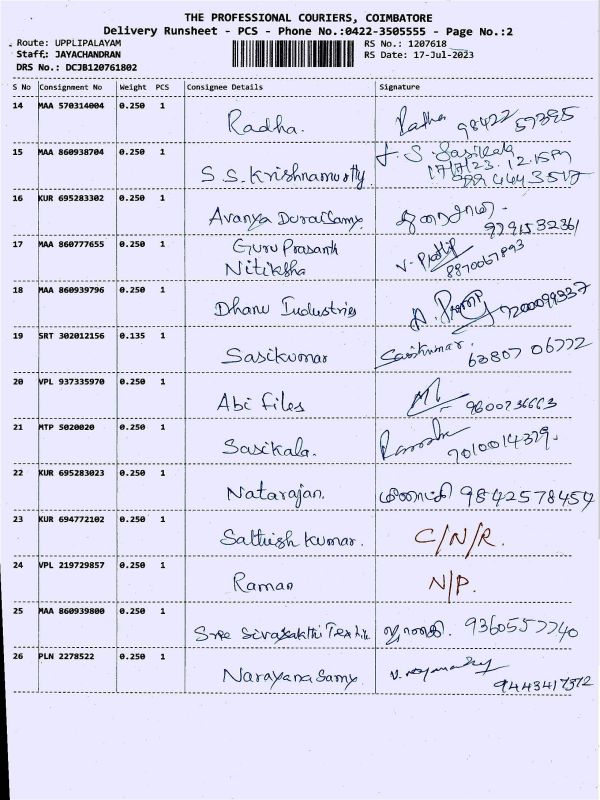 THE PROFESSIONAL COURIERS, COIMBATORE
Delivery Runsheet - PCS - Phone No.:0422-3505555 - Page No.:2
Route: UPPLIPALAYAM RS No.: 1207618
Staff: JAYACHANDRAN RS Date: 17-Jul-2023
DRS No.: DCJB120761802
S No Consignment No Weight PCS Consignee Details Signature
14 MAA 570314004 0.250 1 Radha. Radha 98422 57395
15 MAA 860938704 0.250 1 S.S. Krishnamurthy J. S. Sasikala
17/7/23. 12.15PM
16 KUR 695283302 0.250 1 Avanya Duraisamy
9791532361
17 MAA 860777655 0.250 1 Guru Prasanth
Nitiksha V. Pradip 8870067893
18 MAA 860939796 0.250 1 Dhanu Industries 7200099337
19 SRT 302012156 0.135 1 Sasikumar Sasikumar. 63807 06772
20 VPL 937335970 0.250 1 Abi Files 9600736663
21 MTP 5020020 0.250 1 Sasikala. 7010014379.
22 KUR 695283023 0.250 1 Natarajan. 9842578454
23 KUR 694772102 0.250 1 Sathish Kumar. C/N/R.
24 VPL 219729857 0.250 1 Raman N/P.
25 MAA 860939800 0.250 1 Sree Sivasakthi Textile 9360557740
26 PLN 2278522 0.250 1 Narayanasamy
9443417372